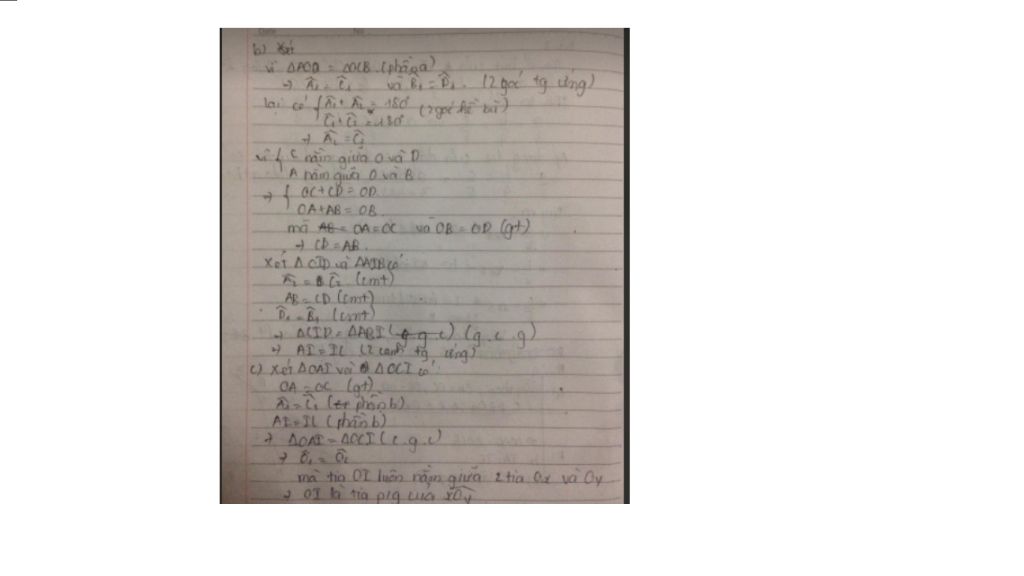 b) Xét
vì ΔAOD = ΔOCB (phần a)
→ Â₁ = Ĉ₁ và B̂₁ = D̂₁. (2 góc tg ứng)
lại có { Â₁ + Â₂ = 180° (2 góc kề bù)
Ĉ₁ + Ĉ₂ = 180°
→ Â₂ = Ĉ₂
vì { C nằm giữa O và D
A nằm giữa O và B
→ { OC + CD = OD
OA + AB = OB.
mà AB = OA = OC và OB = OD (gt)
→ CD = AB.
Xét ΔCID và ΔAIB có
Â₂ = Ĉ₂ (cmt)
AB = CD (cmt)
D̂₁ = B̂₁ (cmt)
→ ΔCID = ΔABI (g.c.g)
→ AI = IC (2 cạnh tg ứng)
c) Xét ΔOAI và ΔOCI có:
OA = OC (gt)
Â₁ = Ĉ₁ (phần b)
AI = IC (phần b)
→ ΔOAI = ΔOCI (c.g.c)
→ Ô₁ = Ô₂
mà tia OI luôn nằm giữa 2 tia Ox và Oy
→ OI là tia p/g của xOy